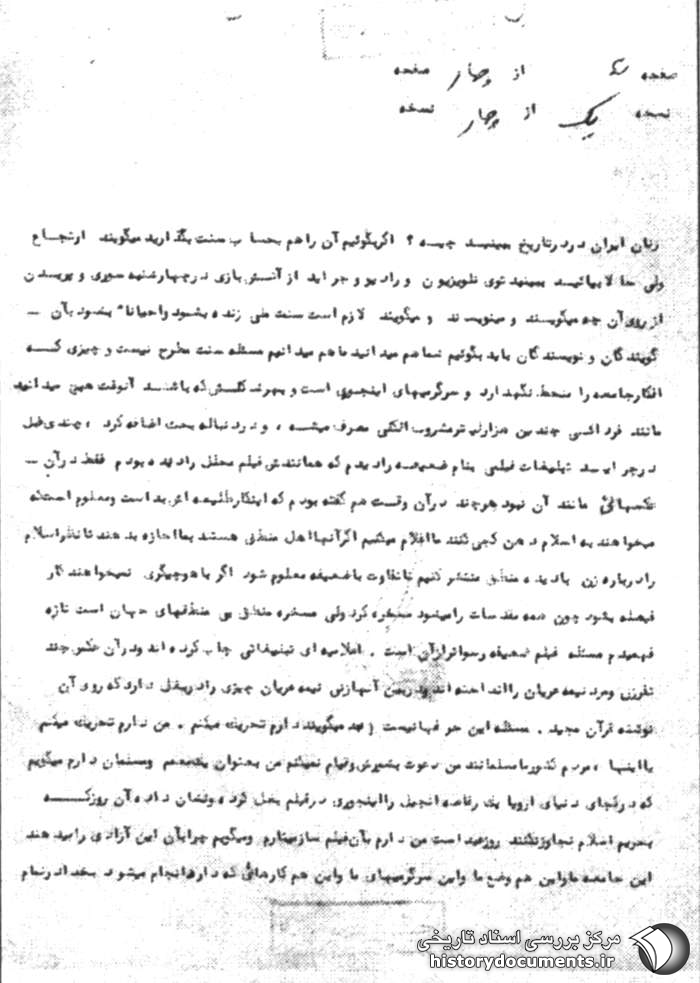 صفحه از چهار صفحه
نسخه یک از چهار نسخه
زنان ایران در تاریخ ببینید چیه ؟ اگر بگوئیم آن را هم بحساب سنت بگذارید میگویند ارتجاع
ولی حالا بیائید ببینید توی تلویزیون و رادیو و جراید از آتش بازی در چهارشنبه سوری و پریدن
از روی آن چه میگویند و مینویسند و میگویند لازم است سنت ملی زنده بشود و احیانا" بخود بآن ـ
گویندگان و نویسندگان باید بگوئیم شما هم میدانید ما هم میدانیم مسئله سنت مطرح نیست و چیزی که
افکار جامعه را منحط نگهدارد و سرگرمیهای اینجوری است و بهر شکلش که باشد آنوقت همین میدانید
مانند فردا شبی چندین هزار لیتر مشروب الکلی مصرف میشه ، و در دنباله بحث اضافه کرد ، چندی قبل
در جراید تبلیغات فیلمی بنام ضعیفه را دیدم که همانندش فیلم محلل را دیده بودم فقط در آن ـ
عکسهائی مانند آن نبود هر چند در آن وقت هم گفته بودم که اینکار طلیعه اش بد است و معلوم است که
میخواهند به اسلام دهن کجی کنند ما اعلام میکنیم اگر آنها اهل منطق هستند بما اجازه بدهند تا نظر اسلام
را درباره زن با دیده منطق منتشر کنیم تا تفاوت با ضعیفه معلوم شود اگر با هوچیگری نمیخواهند کار
فیصله بشود چون همه مقدسات را میشود مسخره کرد ولی مسخره منطق بی منطقهای جهان است تازه
فهمیدم مسئله فیلم ضعیفه رسواتر از آن است . اعلامیه ای تبلیغاتی چاپ کرده اند و در آن عکس چند
نفر زن و مرد نیمه عریان را انداخته اند و در بین آنها زنی نیمه عریان چیزی را در بغل دارد که روی آن
نوشته قرآن مجید . مسئله این حرفها نیست ( بعد میگویند دارم تحریک میکنم . من دارم تحریک میکنم
یا اینها ، مردم کشور ما مسلمانند من دعوت بشورش و قیام نمیکنم من بعنوان یک معمم و مسلمان دارم میگویم
که در کجای دنیای اروپا یک رقاصه انجیل را اینجوری در فیلم بغل کرده و نشان داده آن روز که
بحریم اسلام تجاوز نکنند روز عید است من دارم بآن فیلم ساز میتازم و میگویم چرا بآن این آزادی را بدهند
این جامعه ما و این هم وضع ما و این سرگرمیهای ما و این هم کارهائی که دارد انجام میشود بخدا در تمام
مرکز بررسی اسناد تاریخی
historydocuments.ir